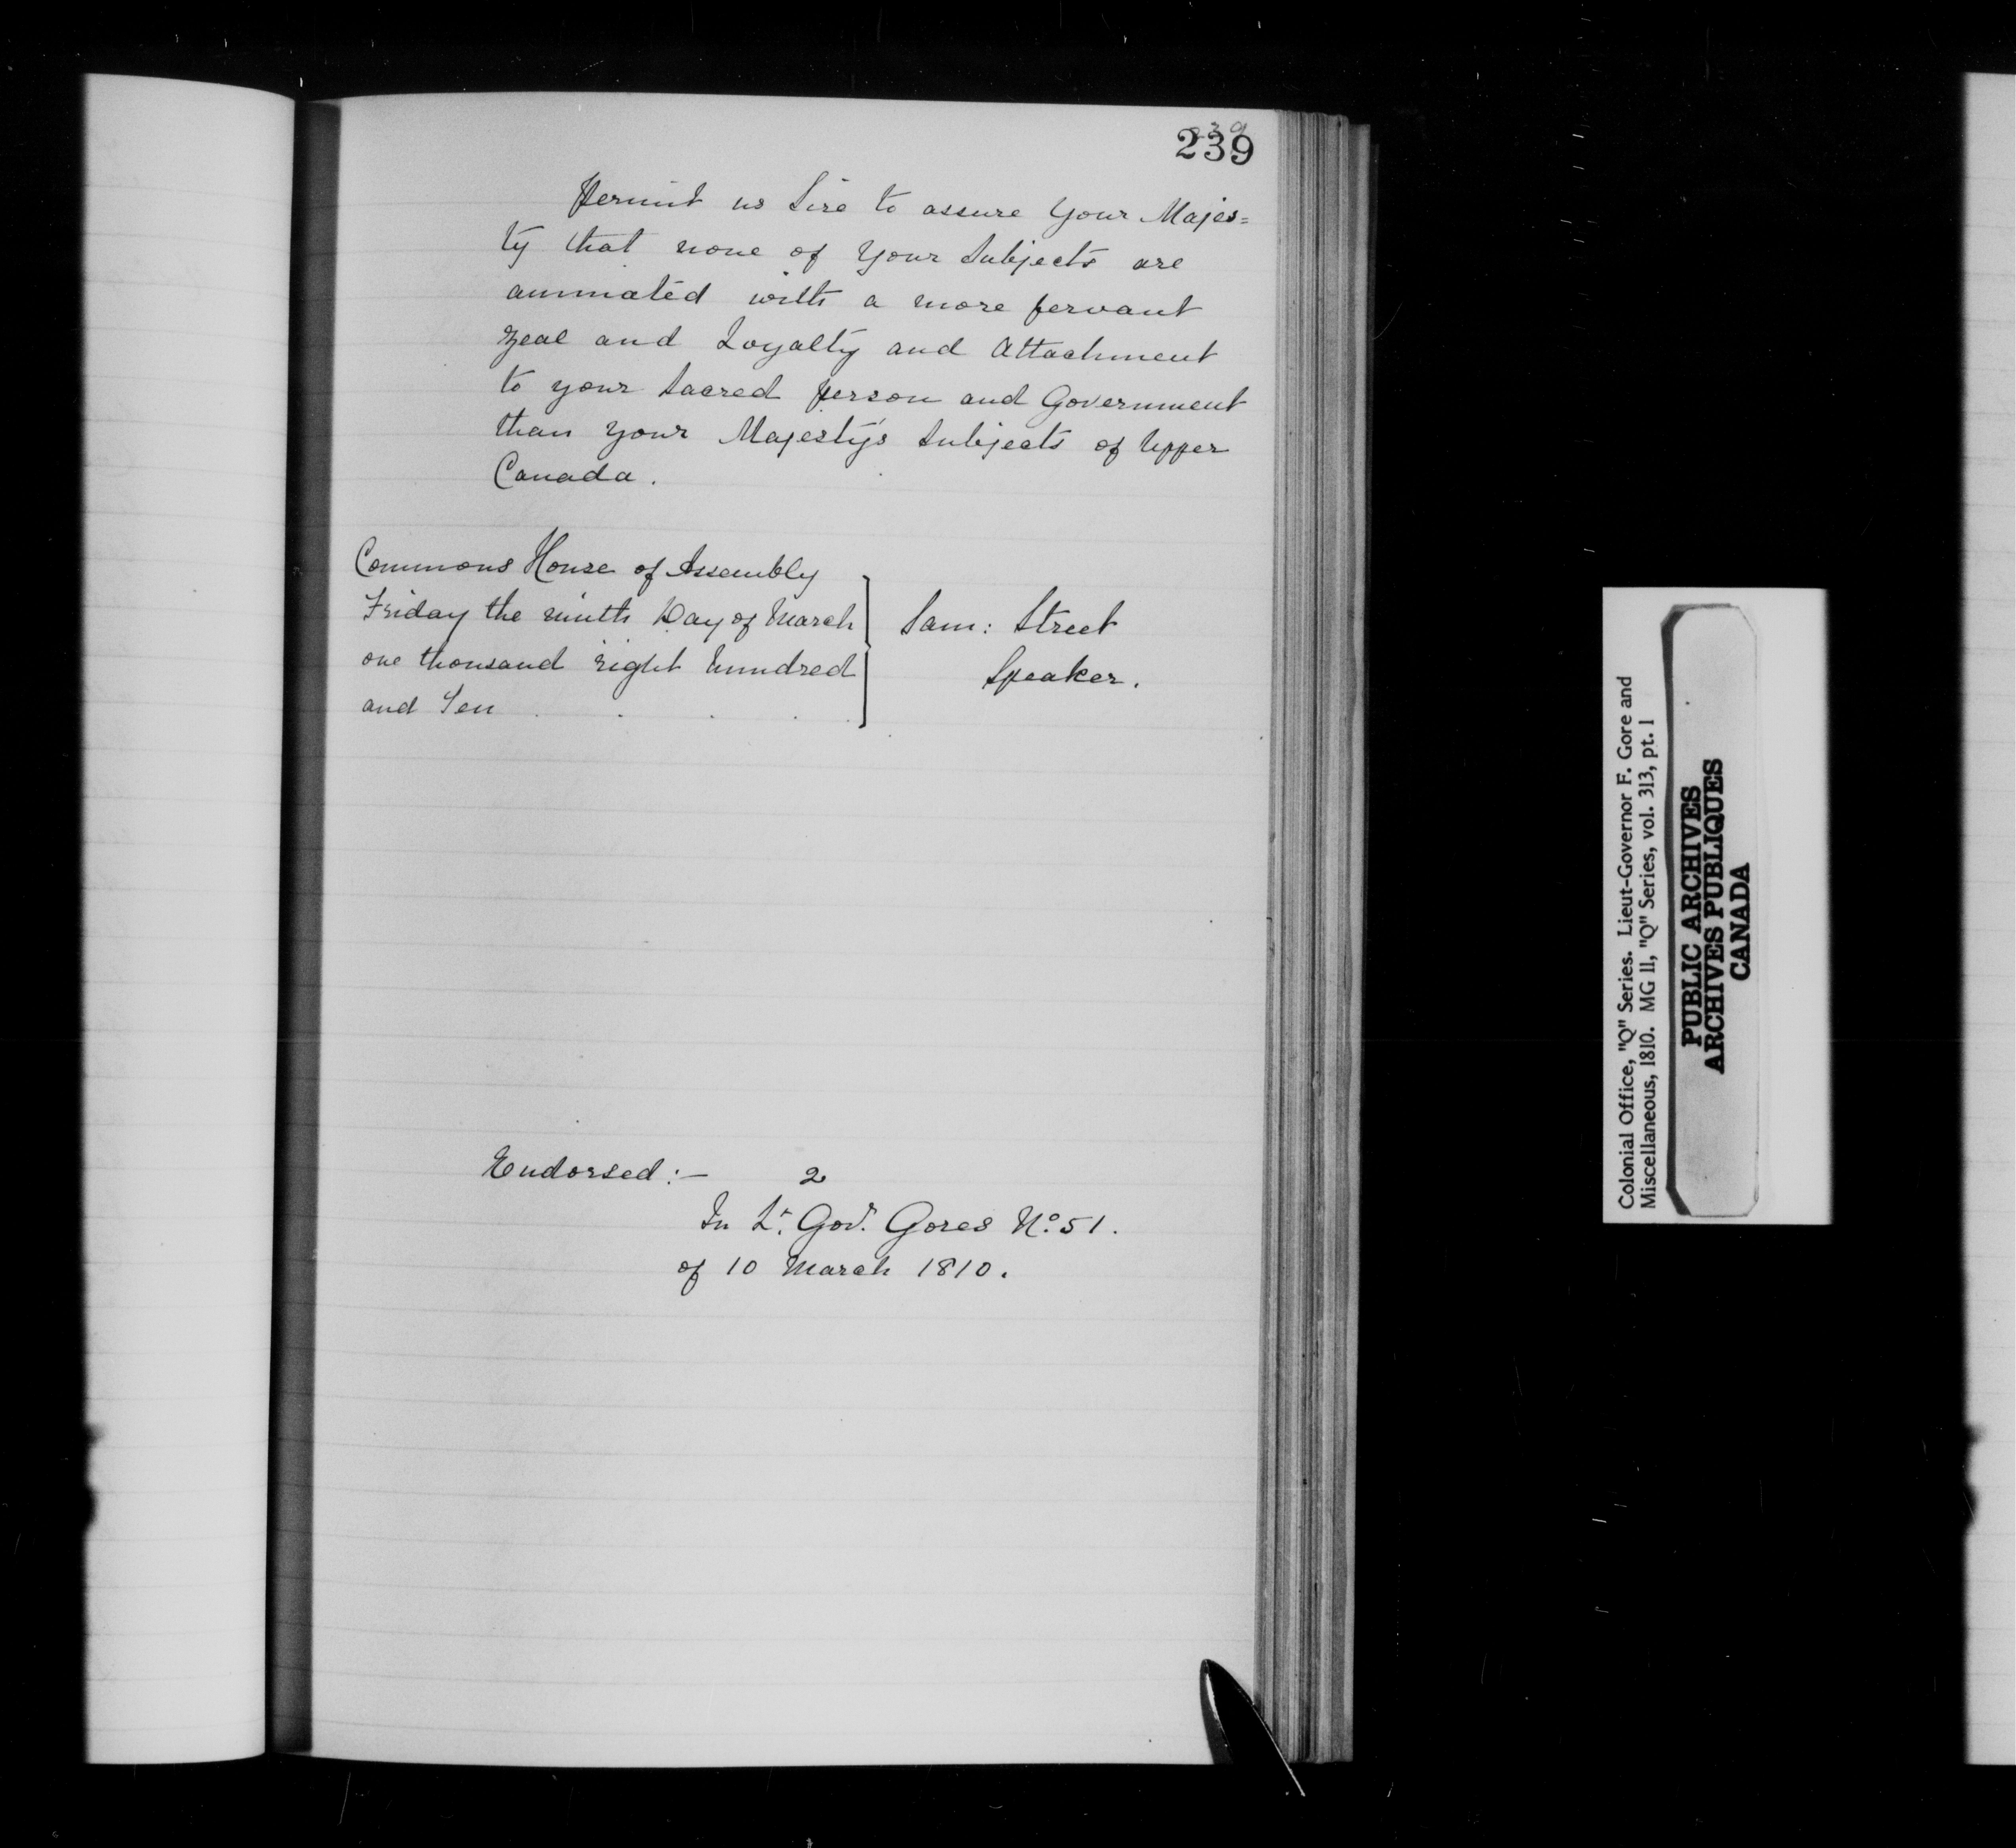 239
239
Permit us Sire to assure Your Majes=
ty that none of Your Subjects are
animated with a more fervant
zeal and Loyalty and Attachment
to your Sacred Person and Government
than Your Majesty's Subjects of Upper
Canada.
Commons House of Assembly
Friday the ninth Day of March
one thousand Eight hundred
and Ten . . . .
Sam: Street
Speaker.
Endorsed:— 2
In Lt. Govr. Gores No. 51.
of 10 March 1810.
Colonial Office, "Q" Series. Lieut-Governor F. Gore and
Miscellaneous, 1810. MG 11, "Q" Series, vol. 313, pt. 1
PUBLIC ARCHIVES
ARCHIVES PUBLIQUES
CANADA